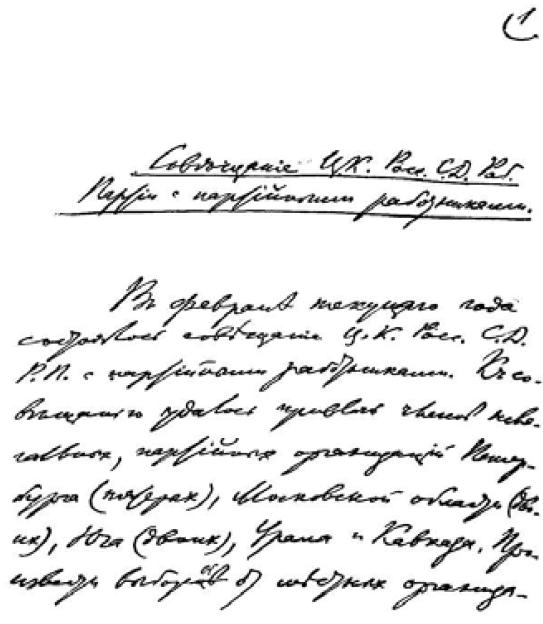 1
Совѣщаніе Ц.К. Росс. С.Д. Раб.
Партіи с партійными работниками.
Въ февралѣ текущаго года
состоялось совѣщаніе Ц.К. Росс. С.Д.
Р.П. с партійными работниками. Къ со-
вѣщанію удалось привлечь членов неле-
гальных, партійных организацій Петер-
бурга (пятерых), Московской области (дво-
их), Юга (двоих), Урала и Кавказа. Про-
извести выборов от мѣстных организа-